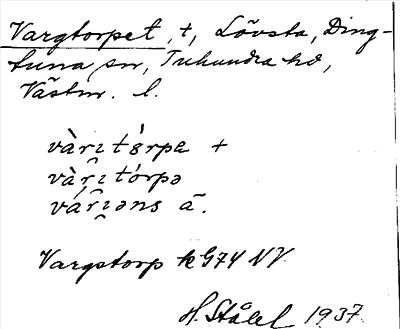 Vargtorpet, +, Lövsta, Ding-
tuna sn, Tuhundra hd,
Västm. l.
vàrɩtǿrpe +
vàrɩ̑tórpə
várɩ̑əns ā.
Vargstorp k G74 NV
H. Ståhl 1937.